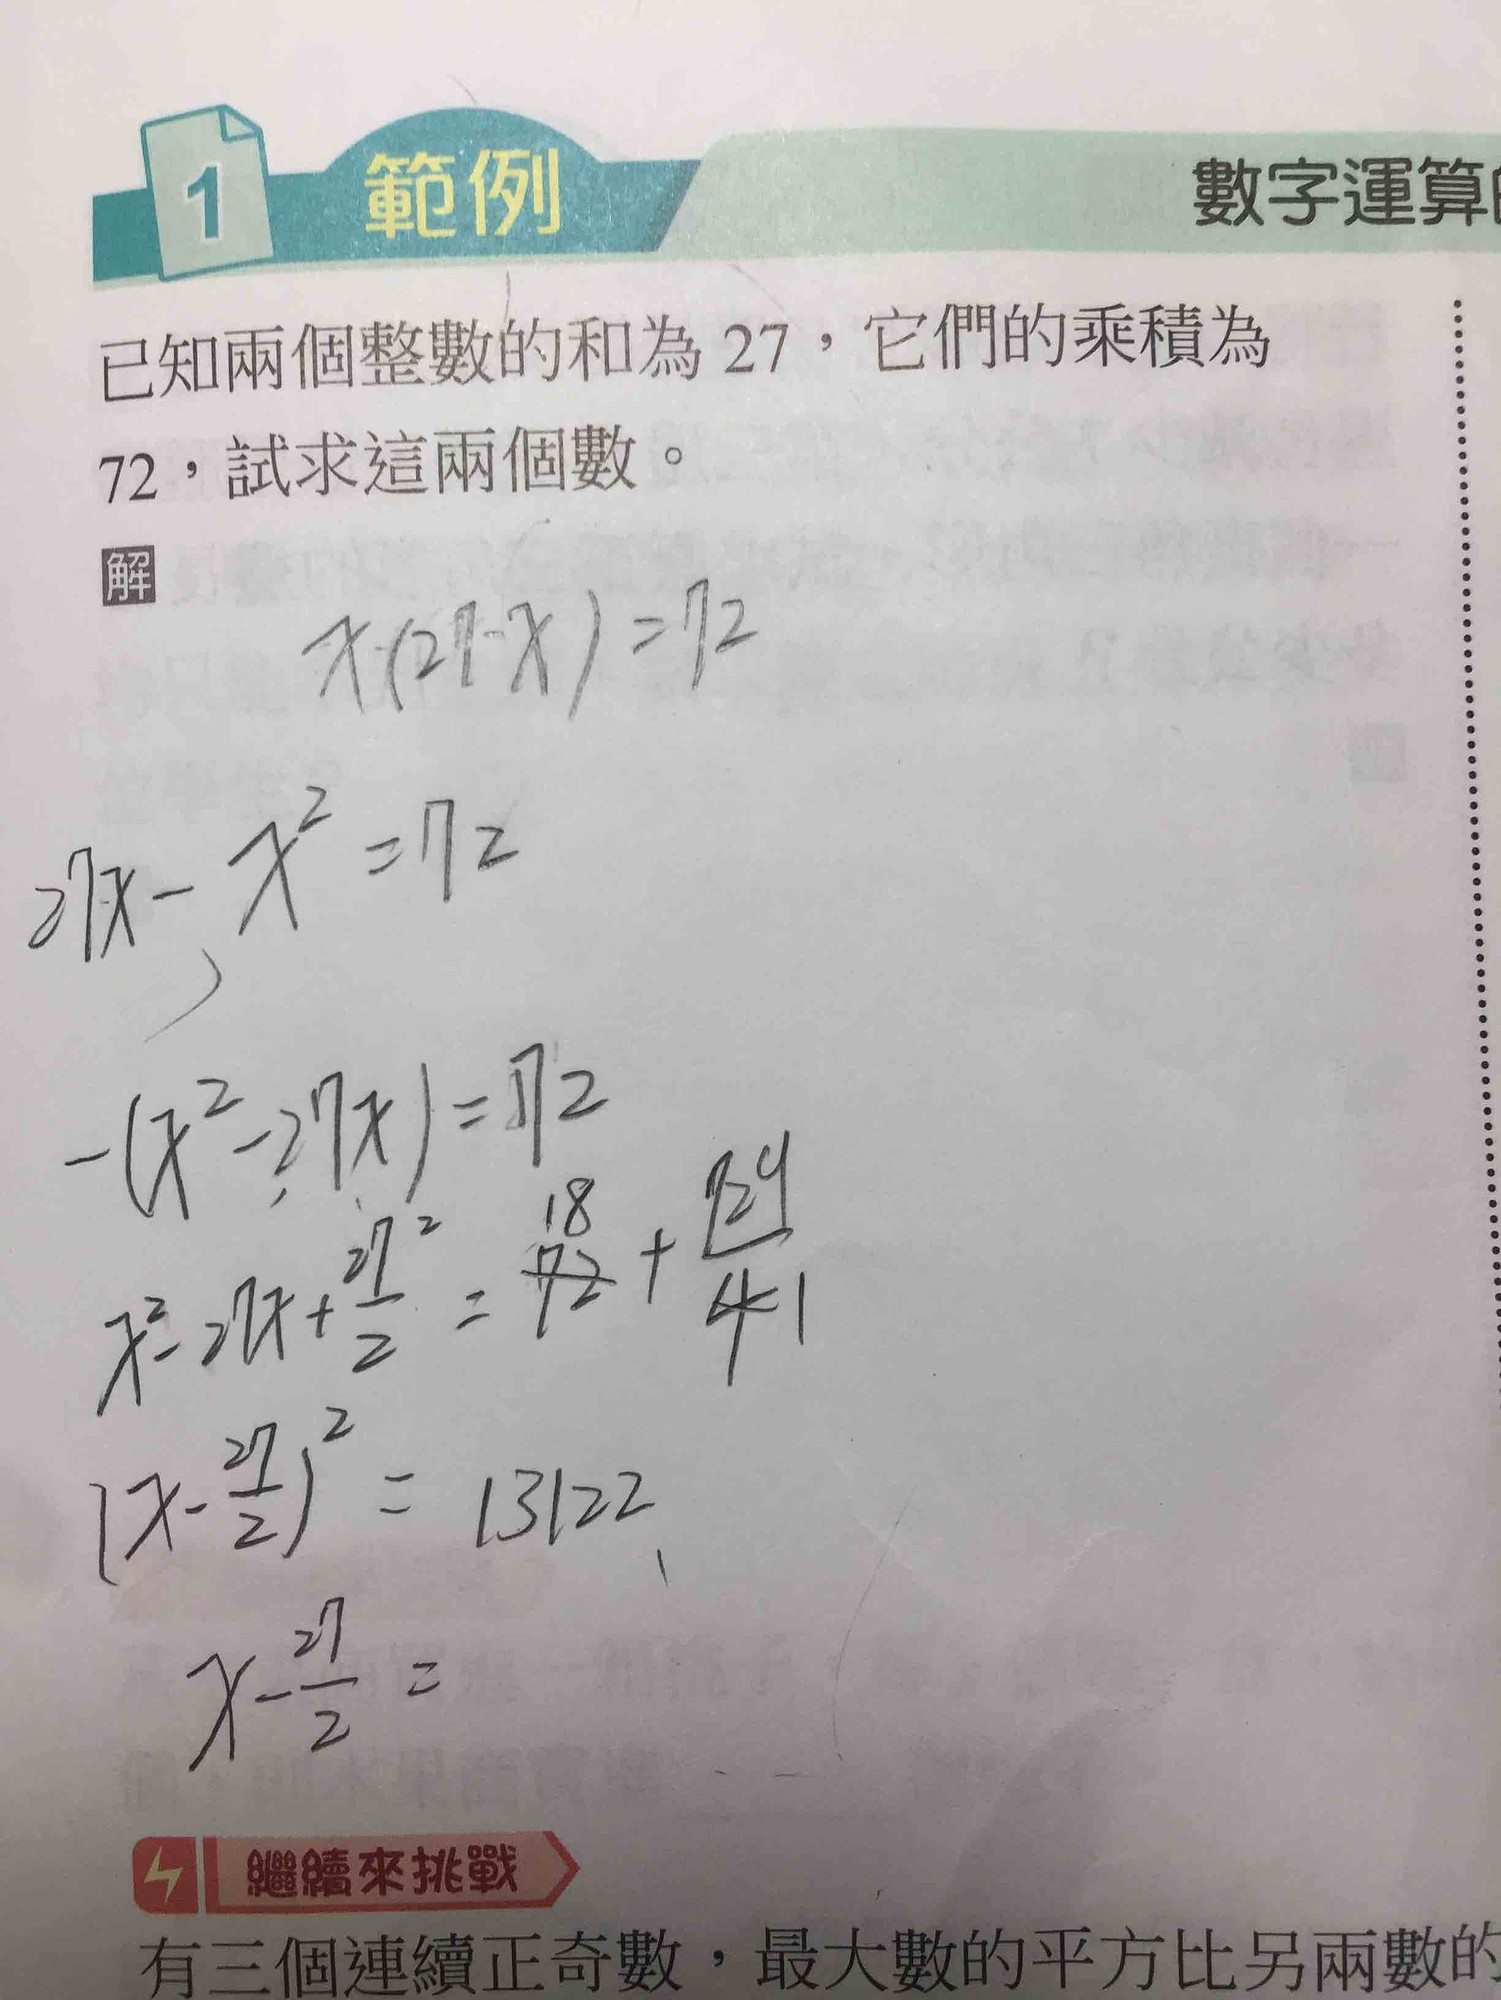 1 範例
數字運算
已知兩個整數的和為 27，它們的乘積為
72，試求這兩個數。
解
x·(27-x)=72
27x-x²=72
-(x²-27x)=72
x²-27x+27²/2=72 18+729/4 1
(x-27/2)²=13122
x-27/2=
繼續來挑戰
有三個連續正奇數，最大數的平方比另兩數的